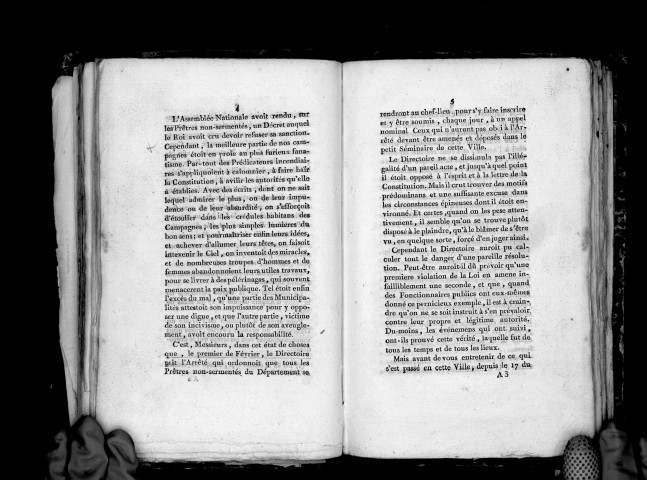 4
L'Assemblée Nationale avoit rendu, sur
les Prêtres non-sermentés, un Décret auquel
le Roi avoit cru devoir refuser sa sanction.
Cependant, la meilleure partie de nos cam-
pagnes étoit en proie au plus furieux fana-
tisme. Par-tout des Prédicateurs incendiai-
res s'appliquoient à calomnier, à faire haïr
la Constitution, à avilir les autorités qu'elle
a établies. Avec des écrits, dont on ne sait
lequel admirer le plus, ou de leur impu-
dence ou de leur absurdité, on s'efforçoit
d'étouffer dans les crédules habitans des
Campagnes, les plus simples lumieres du
bon sens: et pour maîtriser enfin leurs idées,
et achever d'allumer leurs têtes, on faisoit
intervenir le Ciel, on inventoit des miracles,
et de nombreuses troupes d'hommes et de
femmes abandonnoient leurs utiles travaux,
pour se livrer à des pélerinages, qui souvent
menacerent la paix publique. Tel étoit enfin
l'excès du mal, qu'une partie des Municipa-
lités attestoit son impuissance pour y oppo-
ser une digue, et que l'autre partie, victime
de son incivisme, ou plutôt de son aveugle-
ment, avoit encouru la responsabilité.
C'est, Messieurs, dans cet état de choses
que, le premier de Février, le Directoire
prit l'Arrêté qui ordonnoit que tous les
Prêtres non-sermentés du Département se
5
rendront au chef-lieu, pour s'y faire inscrire
et y être soumis, chaque jour, à un appel
nominal Ceux qui n'auront pas obéi à l'Ar-
rêté devant être amenés et déposés dans le
petit Séminaire de cette Ville.
Le Directoire ne se dissimula pas l'illé-
galité d'un pareil acte, et jusqu'à quel point
il étoit opposé à l'esprit et à la lettre de la
Constitution. Mais il crut trouver des motifs
prédominans et une suffisante excuse dans
les circonstances épineuses dont il étoit en-
vironné. Et certes, quand on les pese atten-
tivement, il semble qu'on se trouve plutôt
disposé à le plaindre, qu'à le blâmer de s'être
vu, en quelque sorte, forcé d'en juger ainsi.
Cependant le Directoire auroit pu cal-
culer tout le danger d'une pareille résolu-
tion. Peut-être auroit-il dû prévoir qu'une
premiere violation de la Loi en amene in-
failliblement une seconde, et que, quand
des Fonctionnaires publics ont eux-mêmes
donné ce pernicieux exemple, il est à crain-
dre qu'on ne se soit instruit à s'en prévaloir
contre leur propre et légitime autorité.
Du-moins, les événemens qui ont suivi,
ont-ils prouvé cette vérité, laquelle fut de
tous les temps et de tous les lieux.
Mais avant de vous entretenir de ce qui
s'est passé en cette Ville, depuis le 17 du
A 3